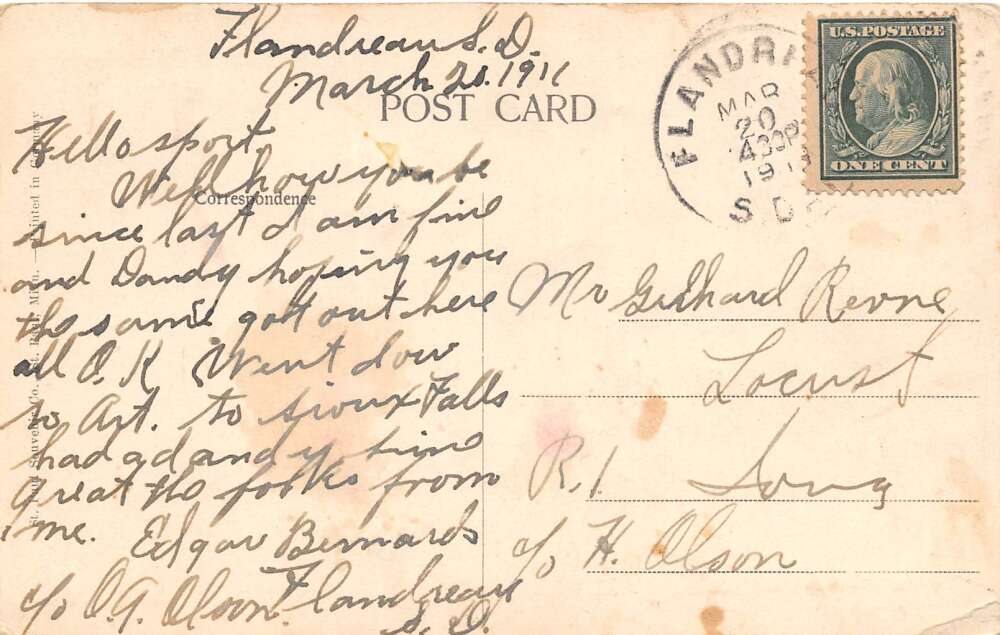 Flandreau S.D.
March 20. 1911
POST CARD
Hello sport.
Well how you be
Correspondence
since last I am fine
and Dandy hoping you
the same gott out here
all O.K. Went dow
to Art. to Sioux Falls
had a dandy time
great the folks from
me. Edgar Bernards
c/o O.G. Olson. Flandreau
S. D.
FLANDR
MAR
20
430P
191
S.D.
U.S. POSTAGE
ONE CENT
Mr Gilhard Revne
Locust
R. 1 Iowa
c/o H. Olson
St. Paul Souvenir Co., St. Paul, Minn. — Printed in Germany